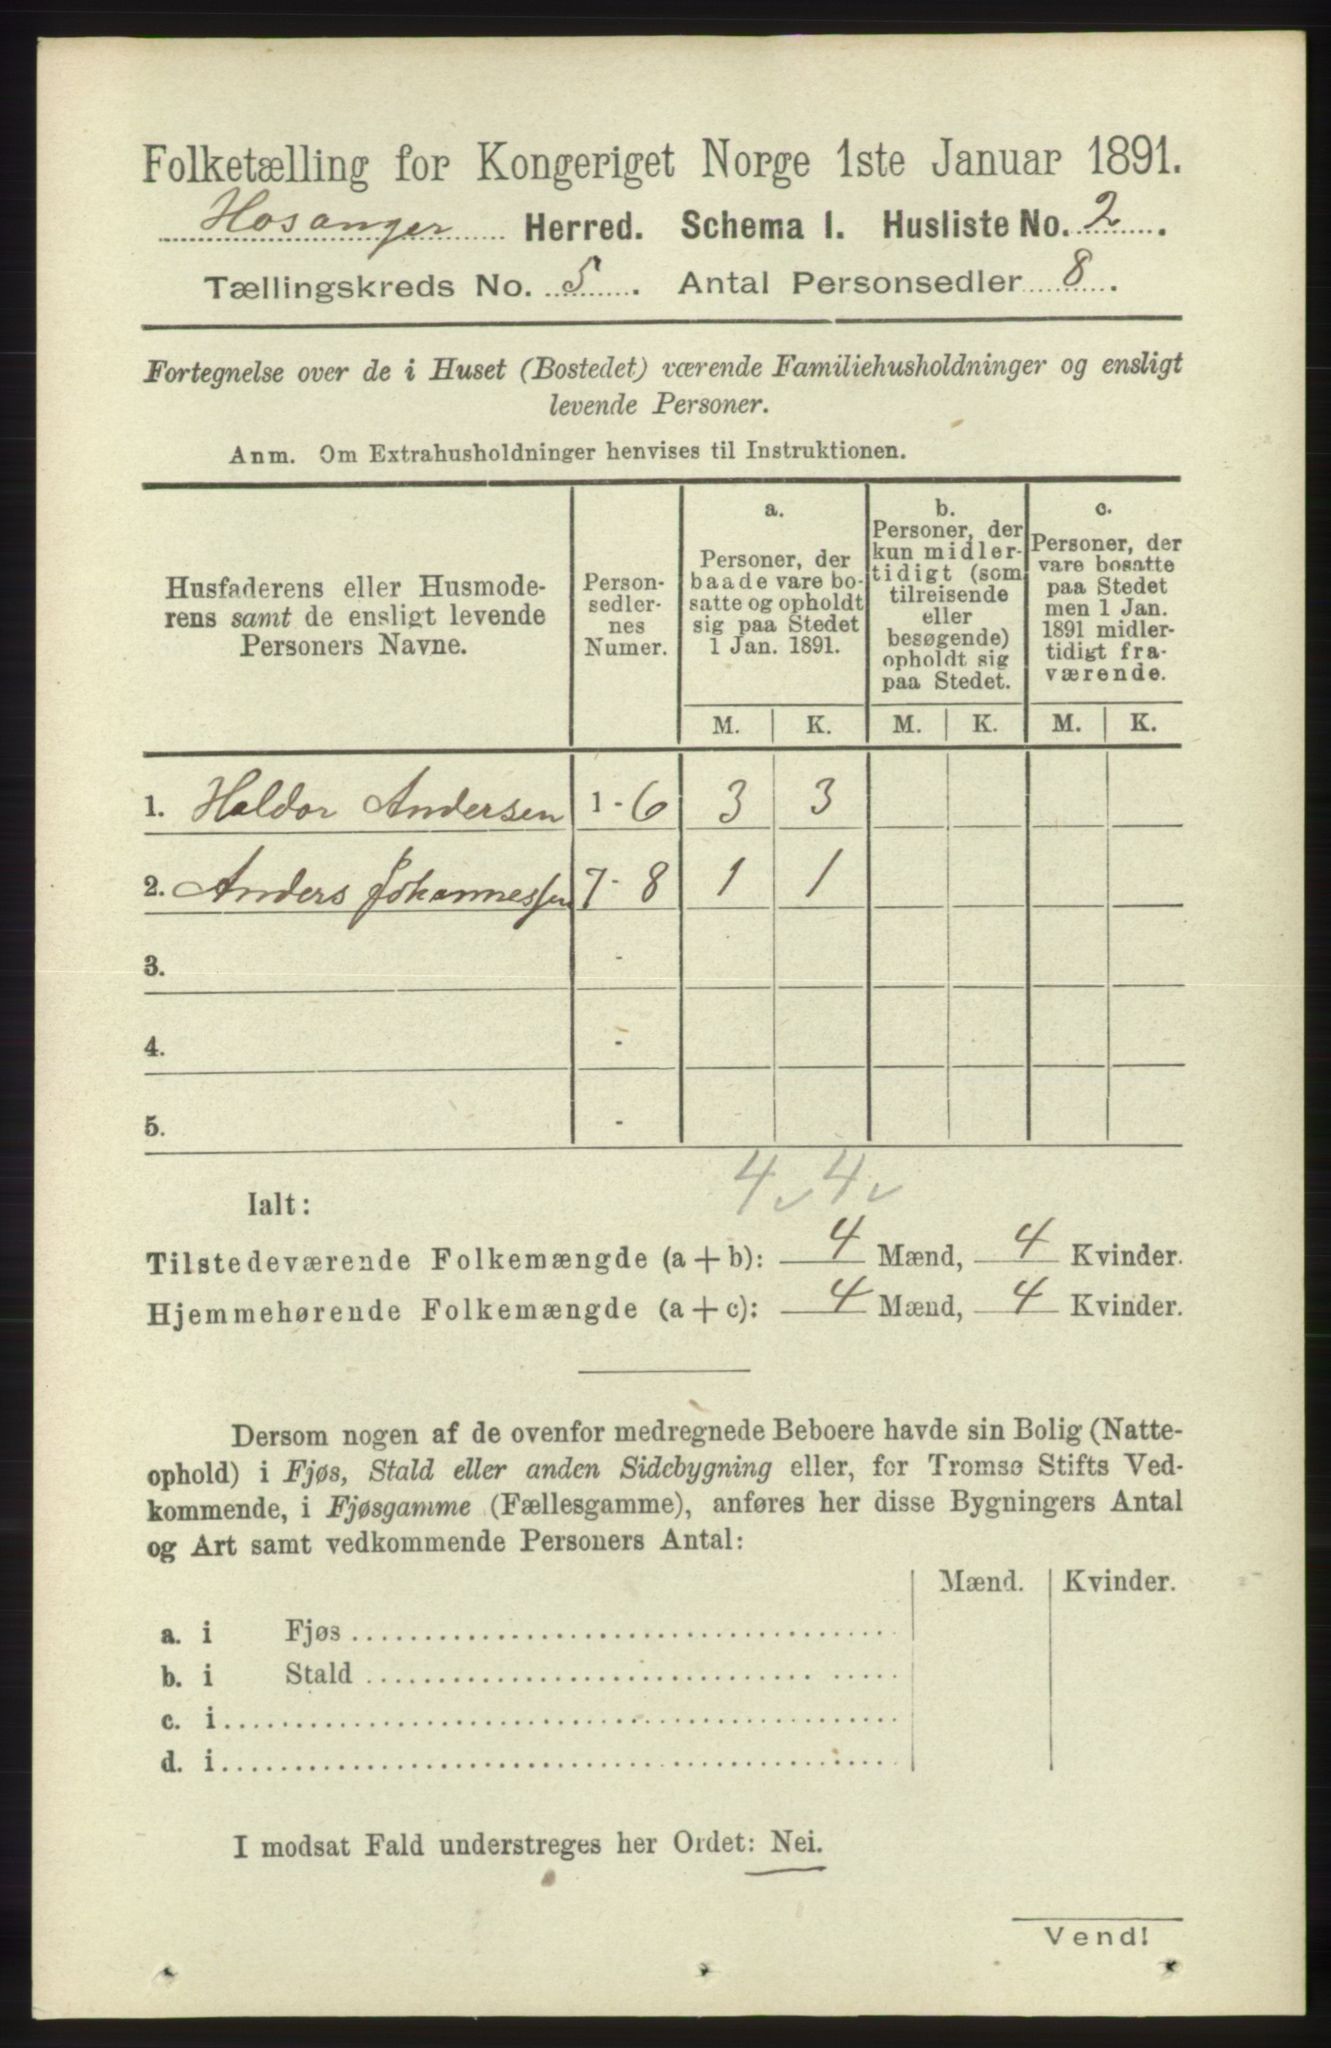 Folketælling for Kongeriget Norge 1ste Januar 1891.
Hosanger Herred. Schema I. Husliste No. 2.
Tællingskreds No. 5. Antal Personsedler 8.
Fortegnelse over de i Huset (Bostedet) værende Familiehusholdninger og ensligt
levende Personer.
Anm. Om Extrahusholdninger henvises til Instruktionen.
Husfaderens eller Husmode-
rens samt de ensligt levende
Personers Navne.
Person-
sedler-
nes
Numer.
a.
Personer, der
baade vare bo-
satte og opholdt
sig paa Stedet
1 Jan. 1891.
b.
Personer, der
kun midler-
tidigt (som
tilreisende
eller
besøgende)
opholdt sig
paa Stedet.
c.
Personer, der
vare bosatte
paa Stedet
men 1 Jan.
1891 midler-
tidigt fra-
værende.
M. K. M. K. M. K.
1. Haldor Andersen 1 - 6 3 3
2. Anders Johannessen 7 - 8 1 1
3. -
4. -
5. -
4 ✓ 4 ✓
Ialt:
Tilstedeværende Folkemængde (a + b): 4 Mænd, 4 Kvinder.
Hjemmehørende Folkemængde (a + c): 4 Mænd, 4 Kvinder.
Dersom nogen af de ovenfor medregnede Beboere havde sin Bolig (Natte-
ophold) i Fjøs, Stald eller anden Sidebygning eller, for Tromsø Stifts Ved-
kommende, i Fjøsgamme (Fællesgamme), anføres her disse Bygningers Antal
og Art samt vedkommende Personers Antal:
Mænd. Kvinder.
a. i Fjøs
b. i Stald
c. i
d. i
I modsat Fald understreges her Ordet: Nei.
Vend!